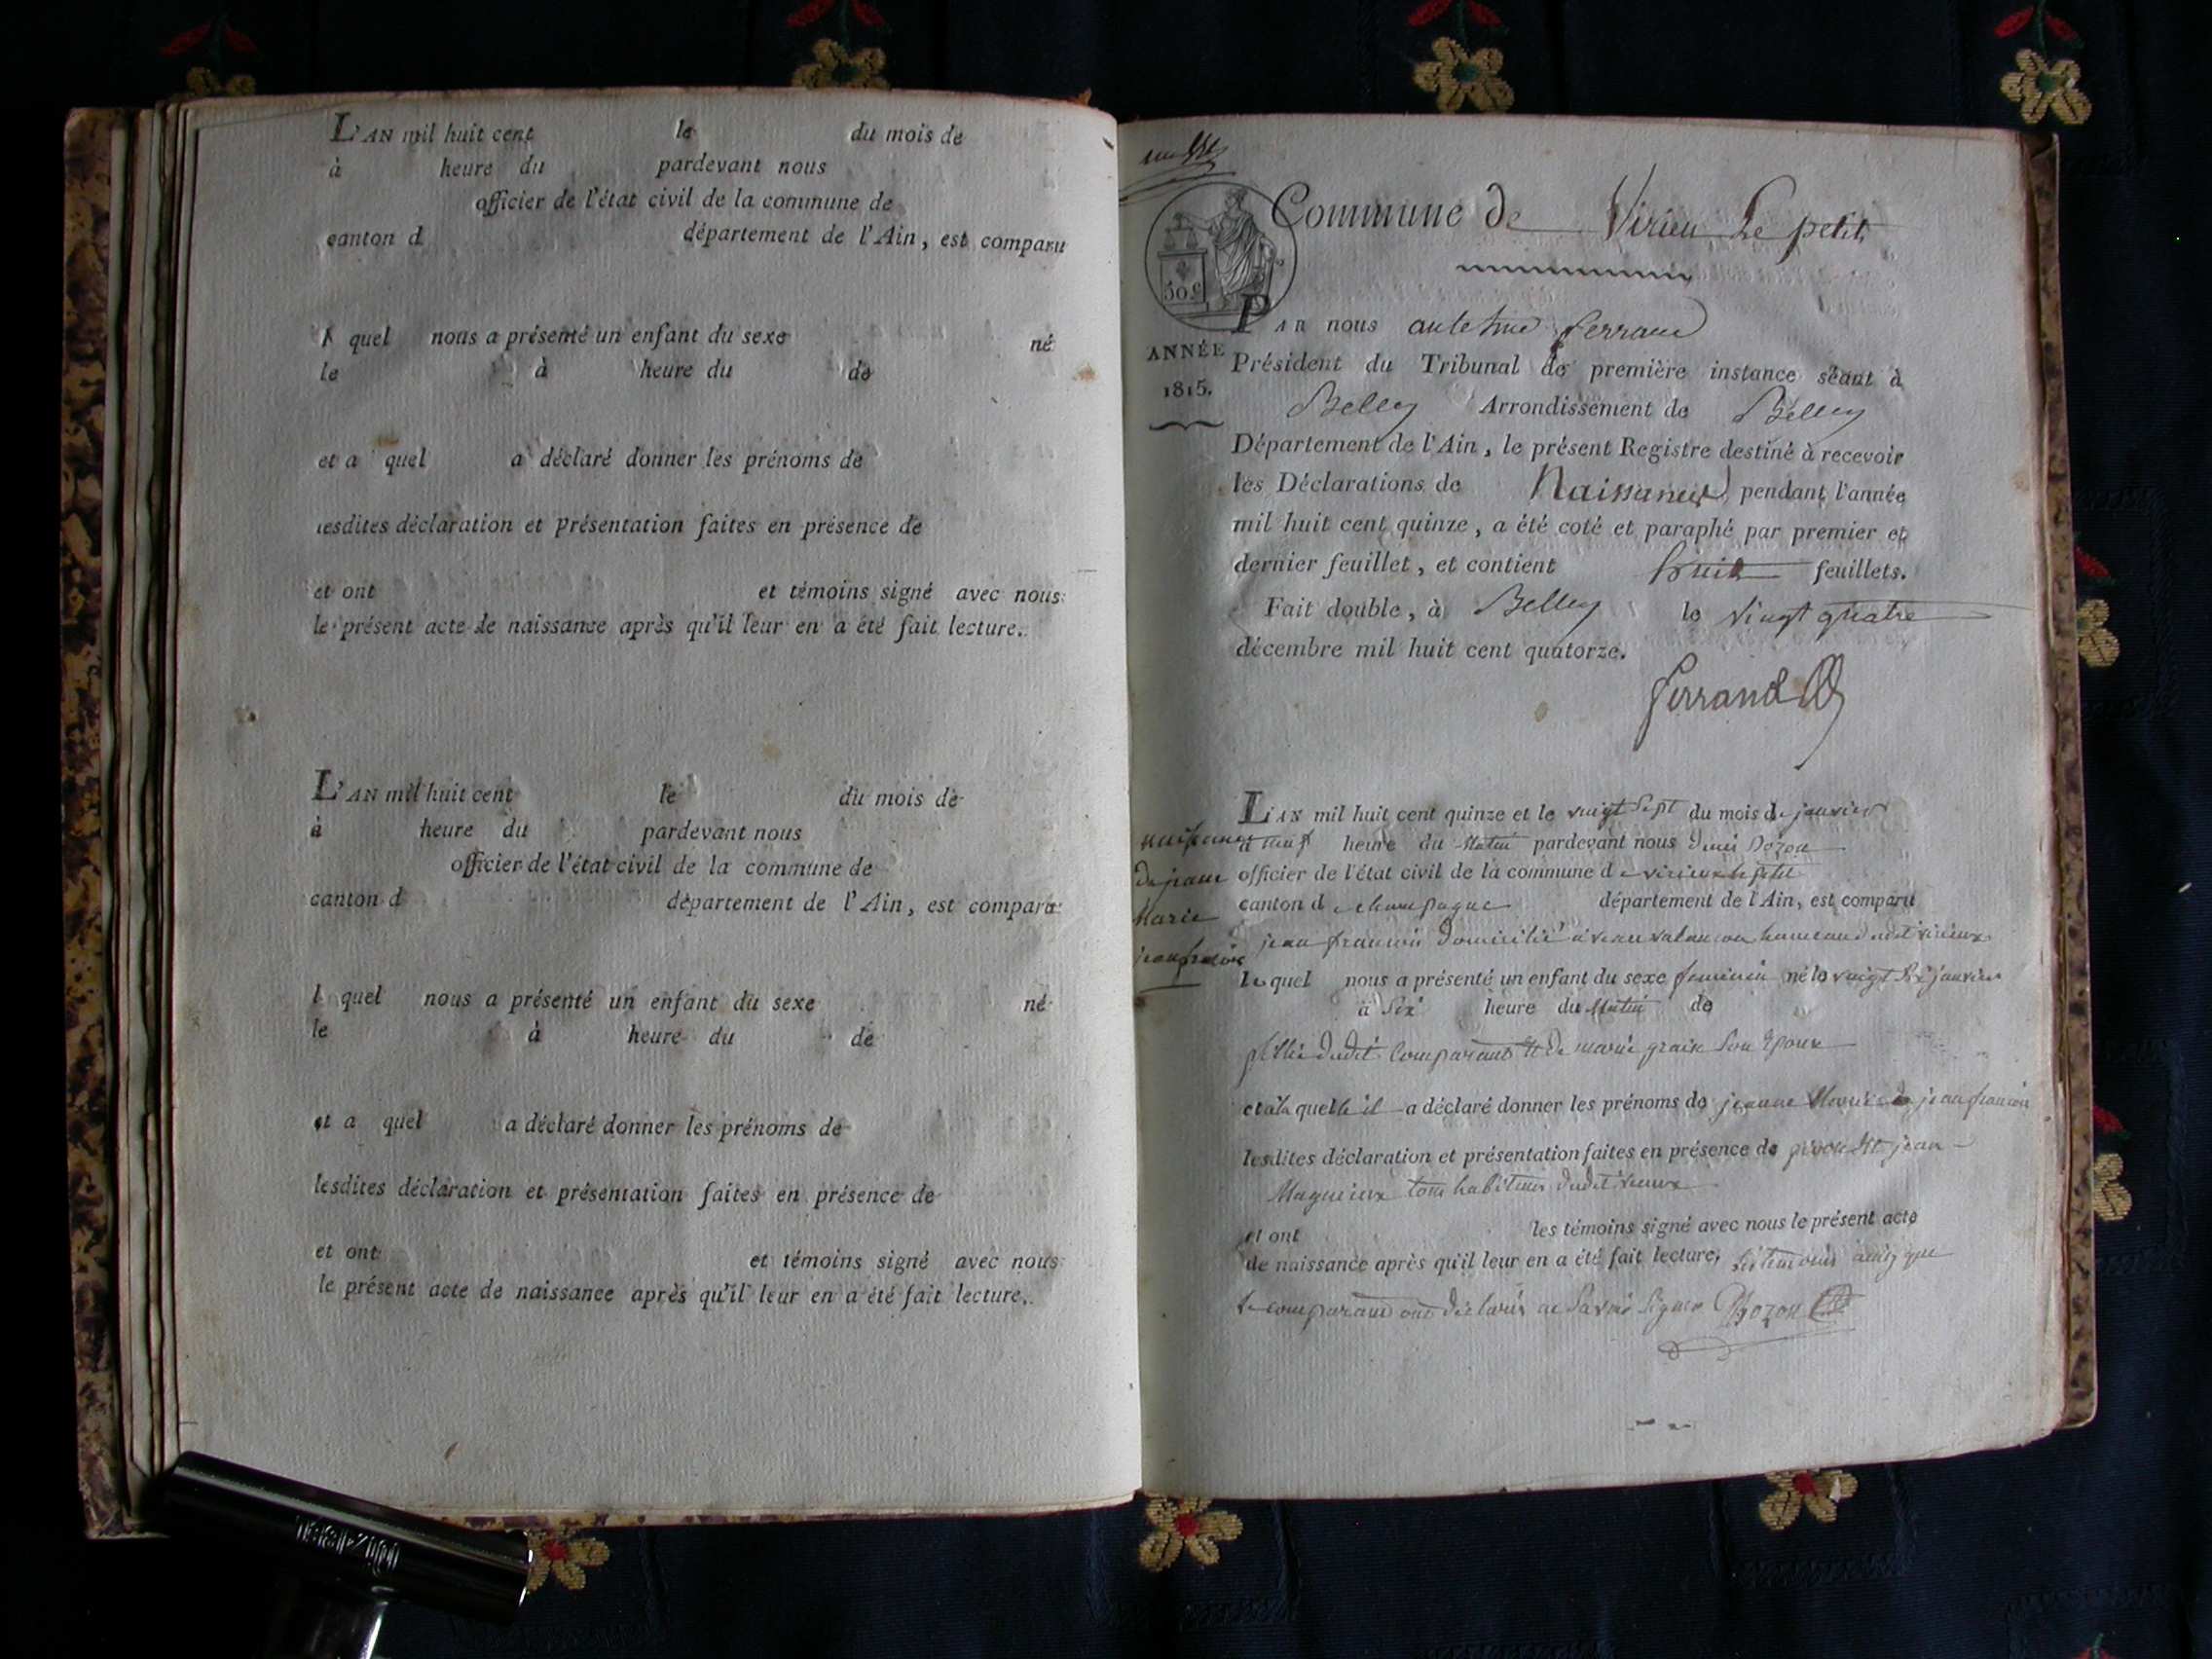 L'AN mil huit cent le du mois de
à heure du pardevant nous
officier de l'état civil de la commune de
canton d département de l'Ain, est comparu
l quel nous a présenté un enfant du sexe né
le à heure du de
et a quel a déclaré donner les prénoms de
lesdites déclaration et présentation faites en présence de
et ont et témoins signé avec nous
le présent acte de naissance après qu'il leur en a été fait lecture.
L'AN mil huit cent le du mois de
à heure du pardevant nous
officier de l'état civil de la commune de
canton d département de l'Ain, est comparu
l quel nous a présenté un enfant du sexe né
le à heure du de
et a quel a déclaré donner les prénoms de
lesdites déclaration et présentation faites en présence de
et ont et témoins signé avec nous
le présent acte de naissance après qu'il leur en a été fait lecture.
Commune de Virieu Le petit
50 c
PAR nous antelme ferrand
ANNÉE
1815.
Président du Tribunal de première instance séant à
Belley Arrondissement de Belley
Département de l'Ain, le présent Registre destiné à recevoir
les Déclarations de Naissances pendant l'année
mil huit cent quinze, a été coté et paraphé par premier et
dernier feuillet, et contient huit feuillets.
Fait double, à Belley le vingt quatre
décembre mil huit cent quatorze.
ferrand
naissance
de jeanne
Marie
jeanfrancois
L'AN mil huit cent quinze et le vingt sept du mois de janvier
à neuf heure du Matin pardevant nous
officier de l'état civil de la commune de virieux le petit
canton de champagne département de l'Ain, est comparu
jean francois domicilié hameau dudit virieux
le quel nous a présenté un enfant du sexe feminin né le vingt six janvier
à six heure du Matin de
fillie dudit Comparant et de marie grain son Epouse
et à la quelle il a déclaré donner les prénoms de jeanne Marie jeanfrancois
lesdites déclaration et présentation faites en présence de et jean
tous habitans dudit virieux
et ont les témoins signé avec nous le présent acte
de naissance après qu'il leur en a été fait lecture, les temoins ainsy que
le comparand ont déclarés ne savoir signer Dhozon